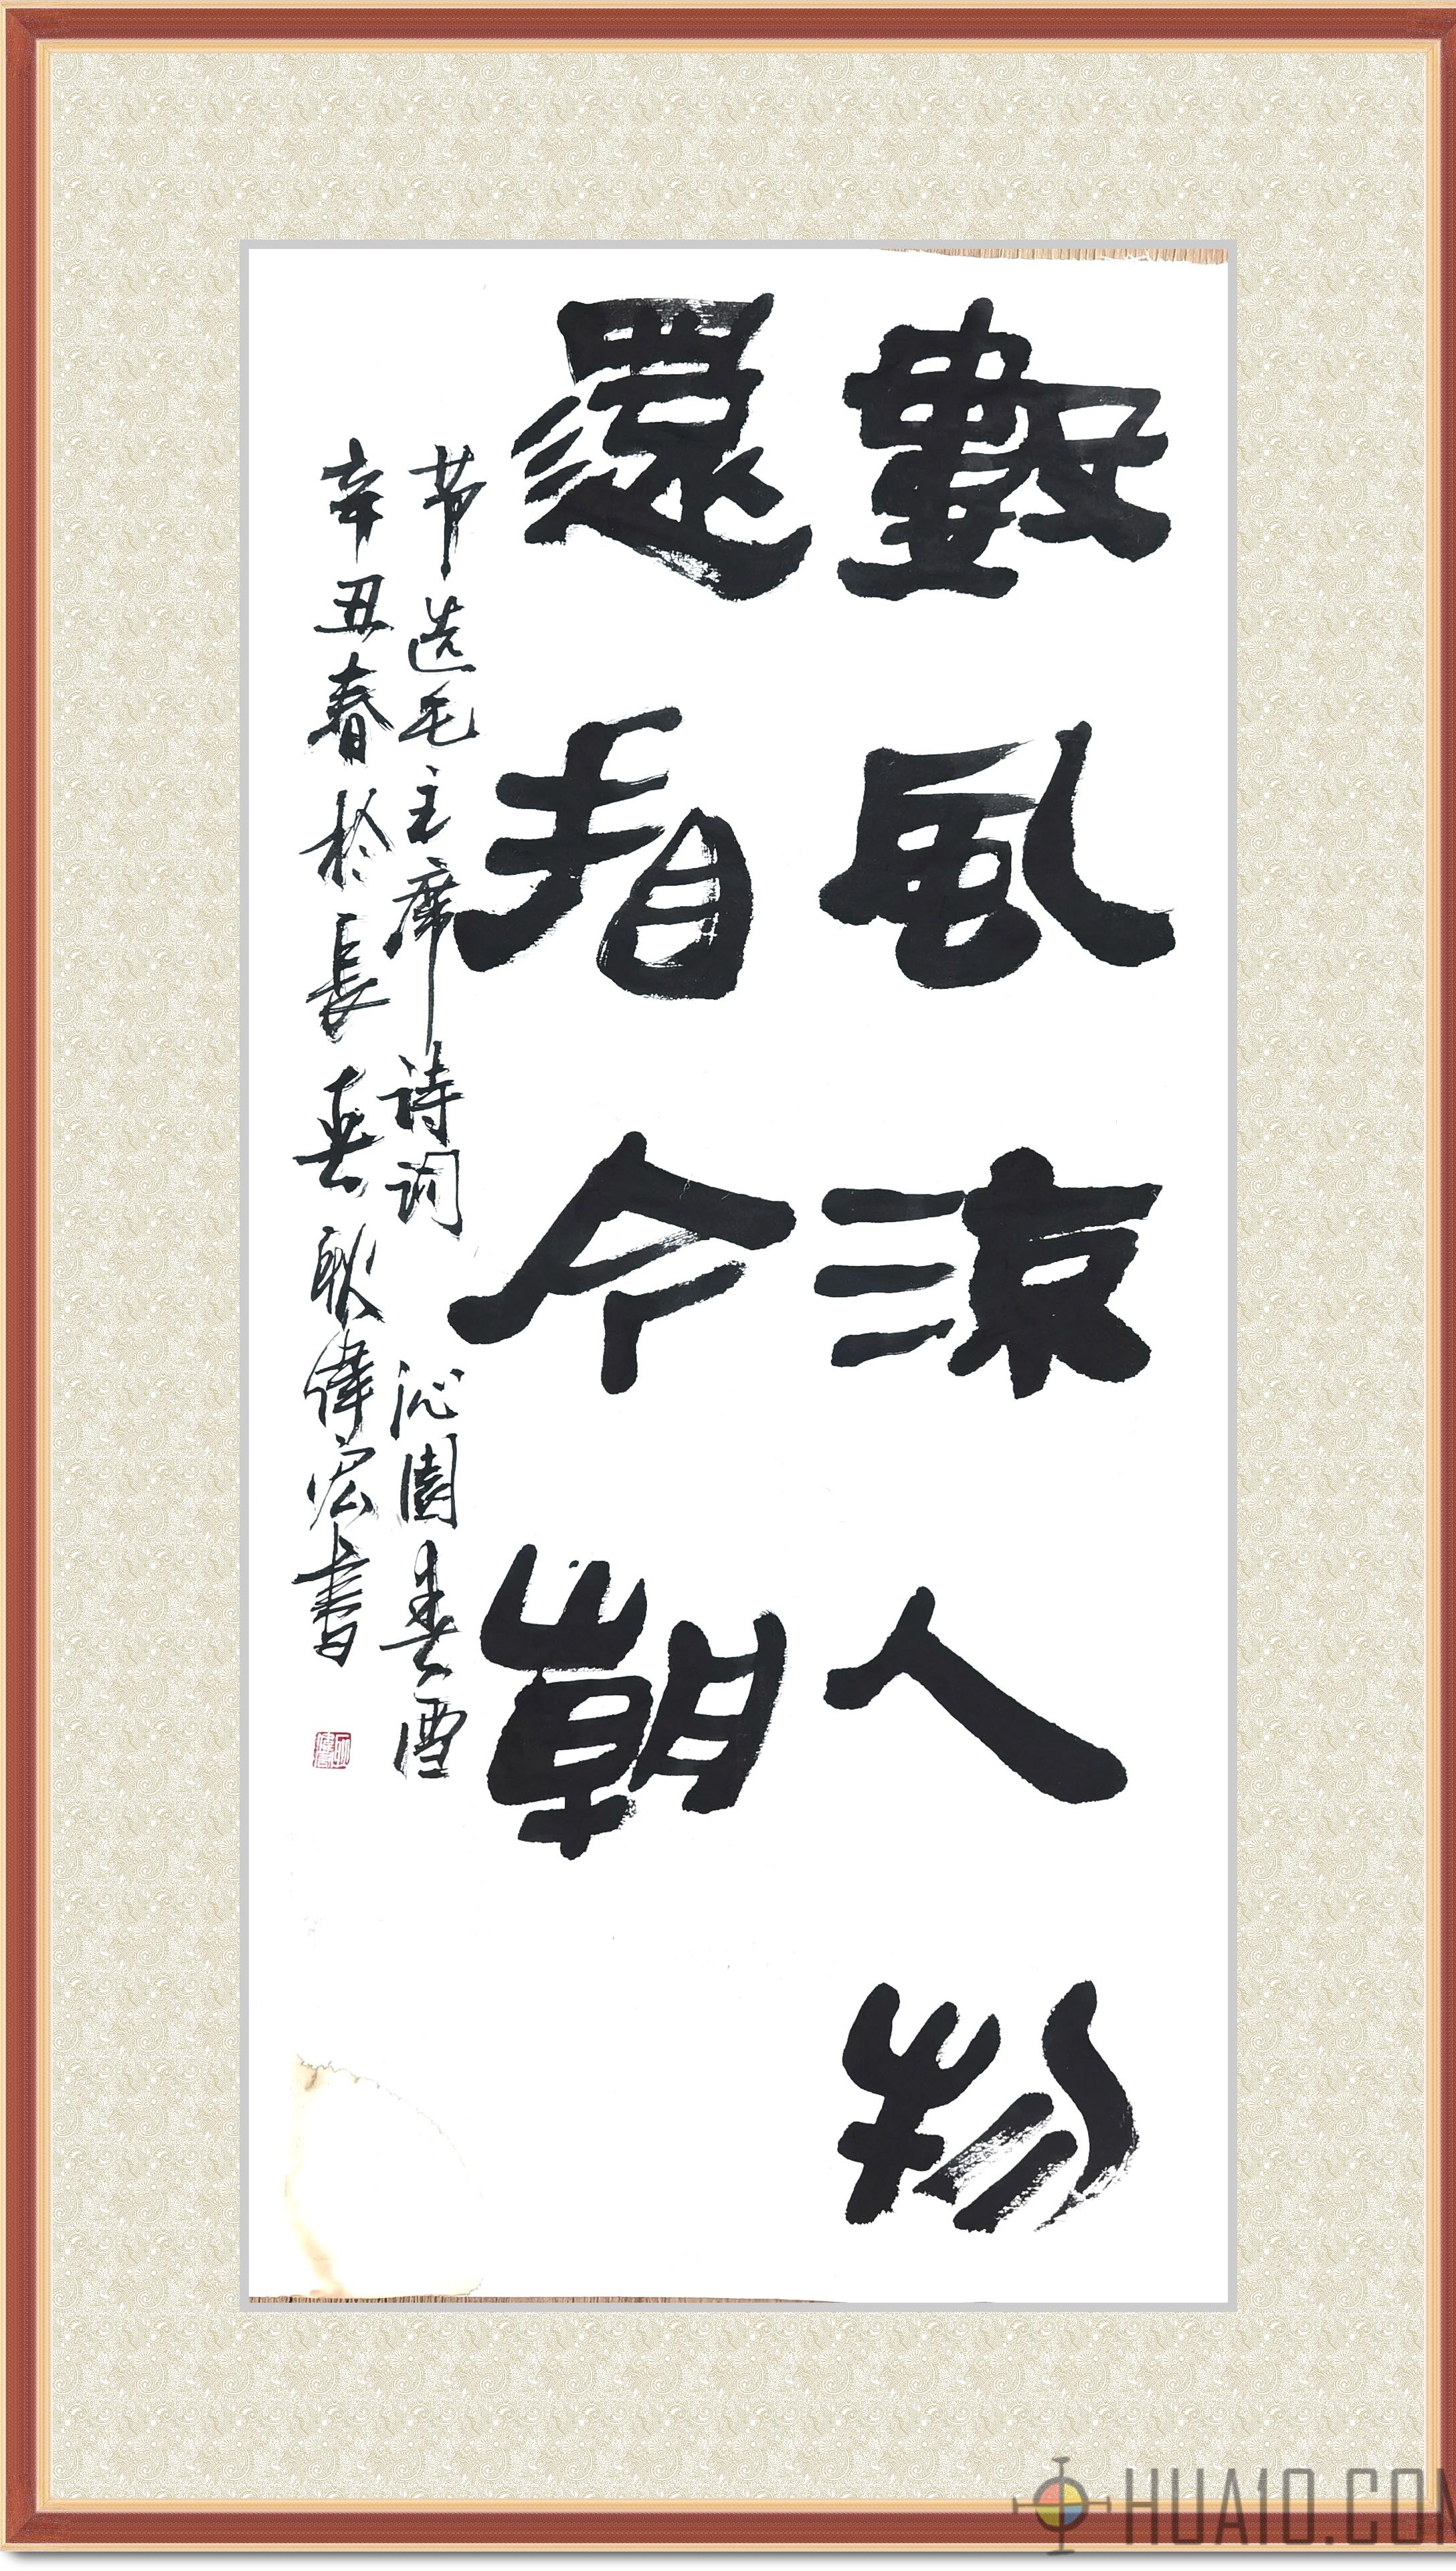 數風流人物
還看今朝
节选毛主席诗词 沁園春雪
辛丑春於長春耿偉宏書
HUA10.COM